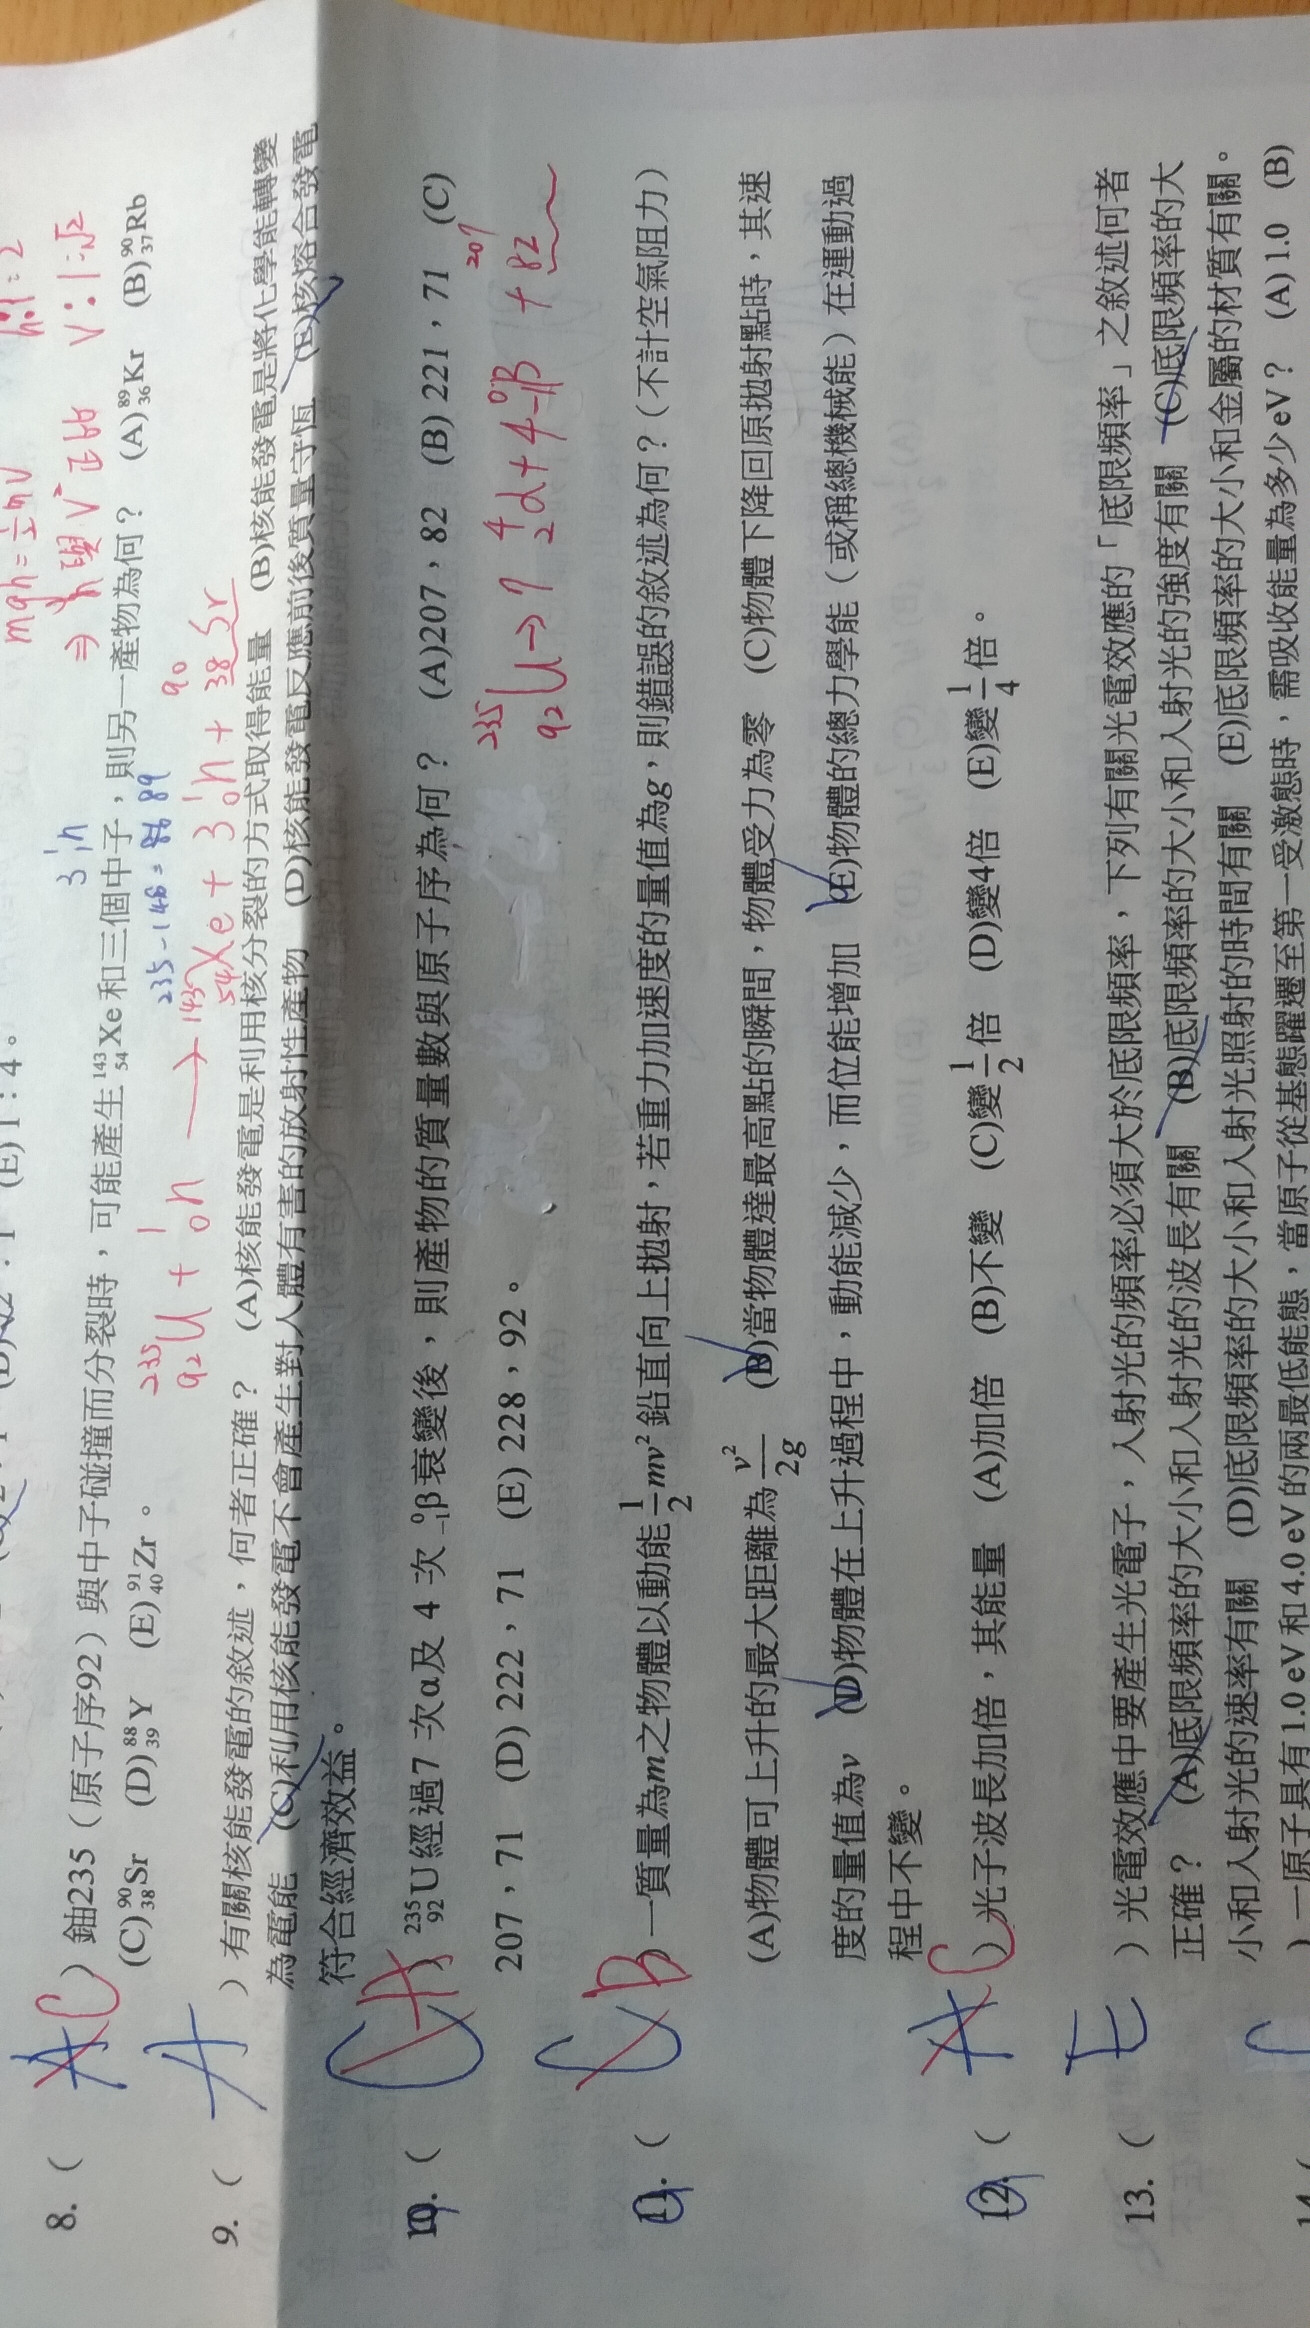 mgh = ½mv
h:1:2
⇒ h與v²正比 v:1:√2
(E) 1:4。
3 ¹₀n
8. ( A C ) 鈾235（原子序92）與中子碰撞而分裂時，可能產生 ¹⁴³₅₄Xe 和三個中子，則另一產物為何？ (A) ⁸⁹₃₆Kr (B) ⁹⁰₃₇Rb
(C) ⁹⁰₃₈Sr (D) ⁸⁸₃₉Y (E) ⁹¹₄₀Zr。
235-146=86 89
²³⁵₉₂U + ¹₀n → ¹⁴³₅₄Xe + 3 ¹₀n + ⁹⁰₃₈Sr
9. ( A ) 有關核能發電的敘述，何者正確？ (A)核能發電是利用核分裂的方式取得能量 (B)核能發電是將化學能轉變
為電能 (C)利用核能發電不會產生對人體有害的放射性產物 (D)核能發電反應前後質量守恆 (E)核熔合發電
符合經濟效益。
10. ( C A ) ²³⁵₉₂U 經過7 次α及 4 次 ⁰₋₁β衰變後，則產物的質量數與原子序為何？ (A)207，82 (B) 221，71 (C)
207，71 (D) 222，71 (E) 228，92。
²³⁵₉₂U → 7 ⁴₂α + 4 ⁰₋₁β + ²⁰⁷₈₂
11. ( C B ) 一質量為m之物體以動能½mv²鉛直向上拋射，若重力加速度的量值為g，則錯誤的敘述為何？（不計空氣阻力）
(A)物體可上升的最大距離為v²/2g (B)當物體達最高點的瞬間，物體受力為零 (C)物體下降回原拋射點時，其速
度的量值為v (D)物體在上升過程中，動能減少，而位能增加 (E)物體的總力學能（或稱總機械能）在運動過
程中不變。
12. ( A C ) 光子波長加倍，其能量 (A)加倍 (B)不變 (C)變1/2倍 (D)變4倍 (E)變1/4倍。
13. ( E ) 光電效應中要產生光電子，入射光的頻率必須大於底限頻率，下列有關光電效應的「底限頻率」之敘述何者
正確？ (A)底限頻率的大小和入射光的波長有關 (B)底限頻率的大小和入射光的強度有關 (C)底限頻率的大
小和入射光的速率有關 (D)底限頻率的大小和入射光照射的時間有關 (E)底限頻率的大小和金屬的材質有關。
) 一原子具有1.0 eV 和 4.0 eV 的兩最低能態，當原子從基態躍遷至第一受激態時，需吸收能量為多少eV？ (A) 1.0 (B)